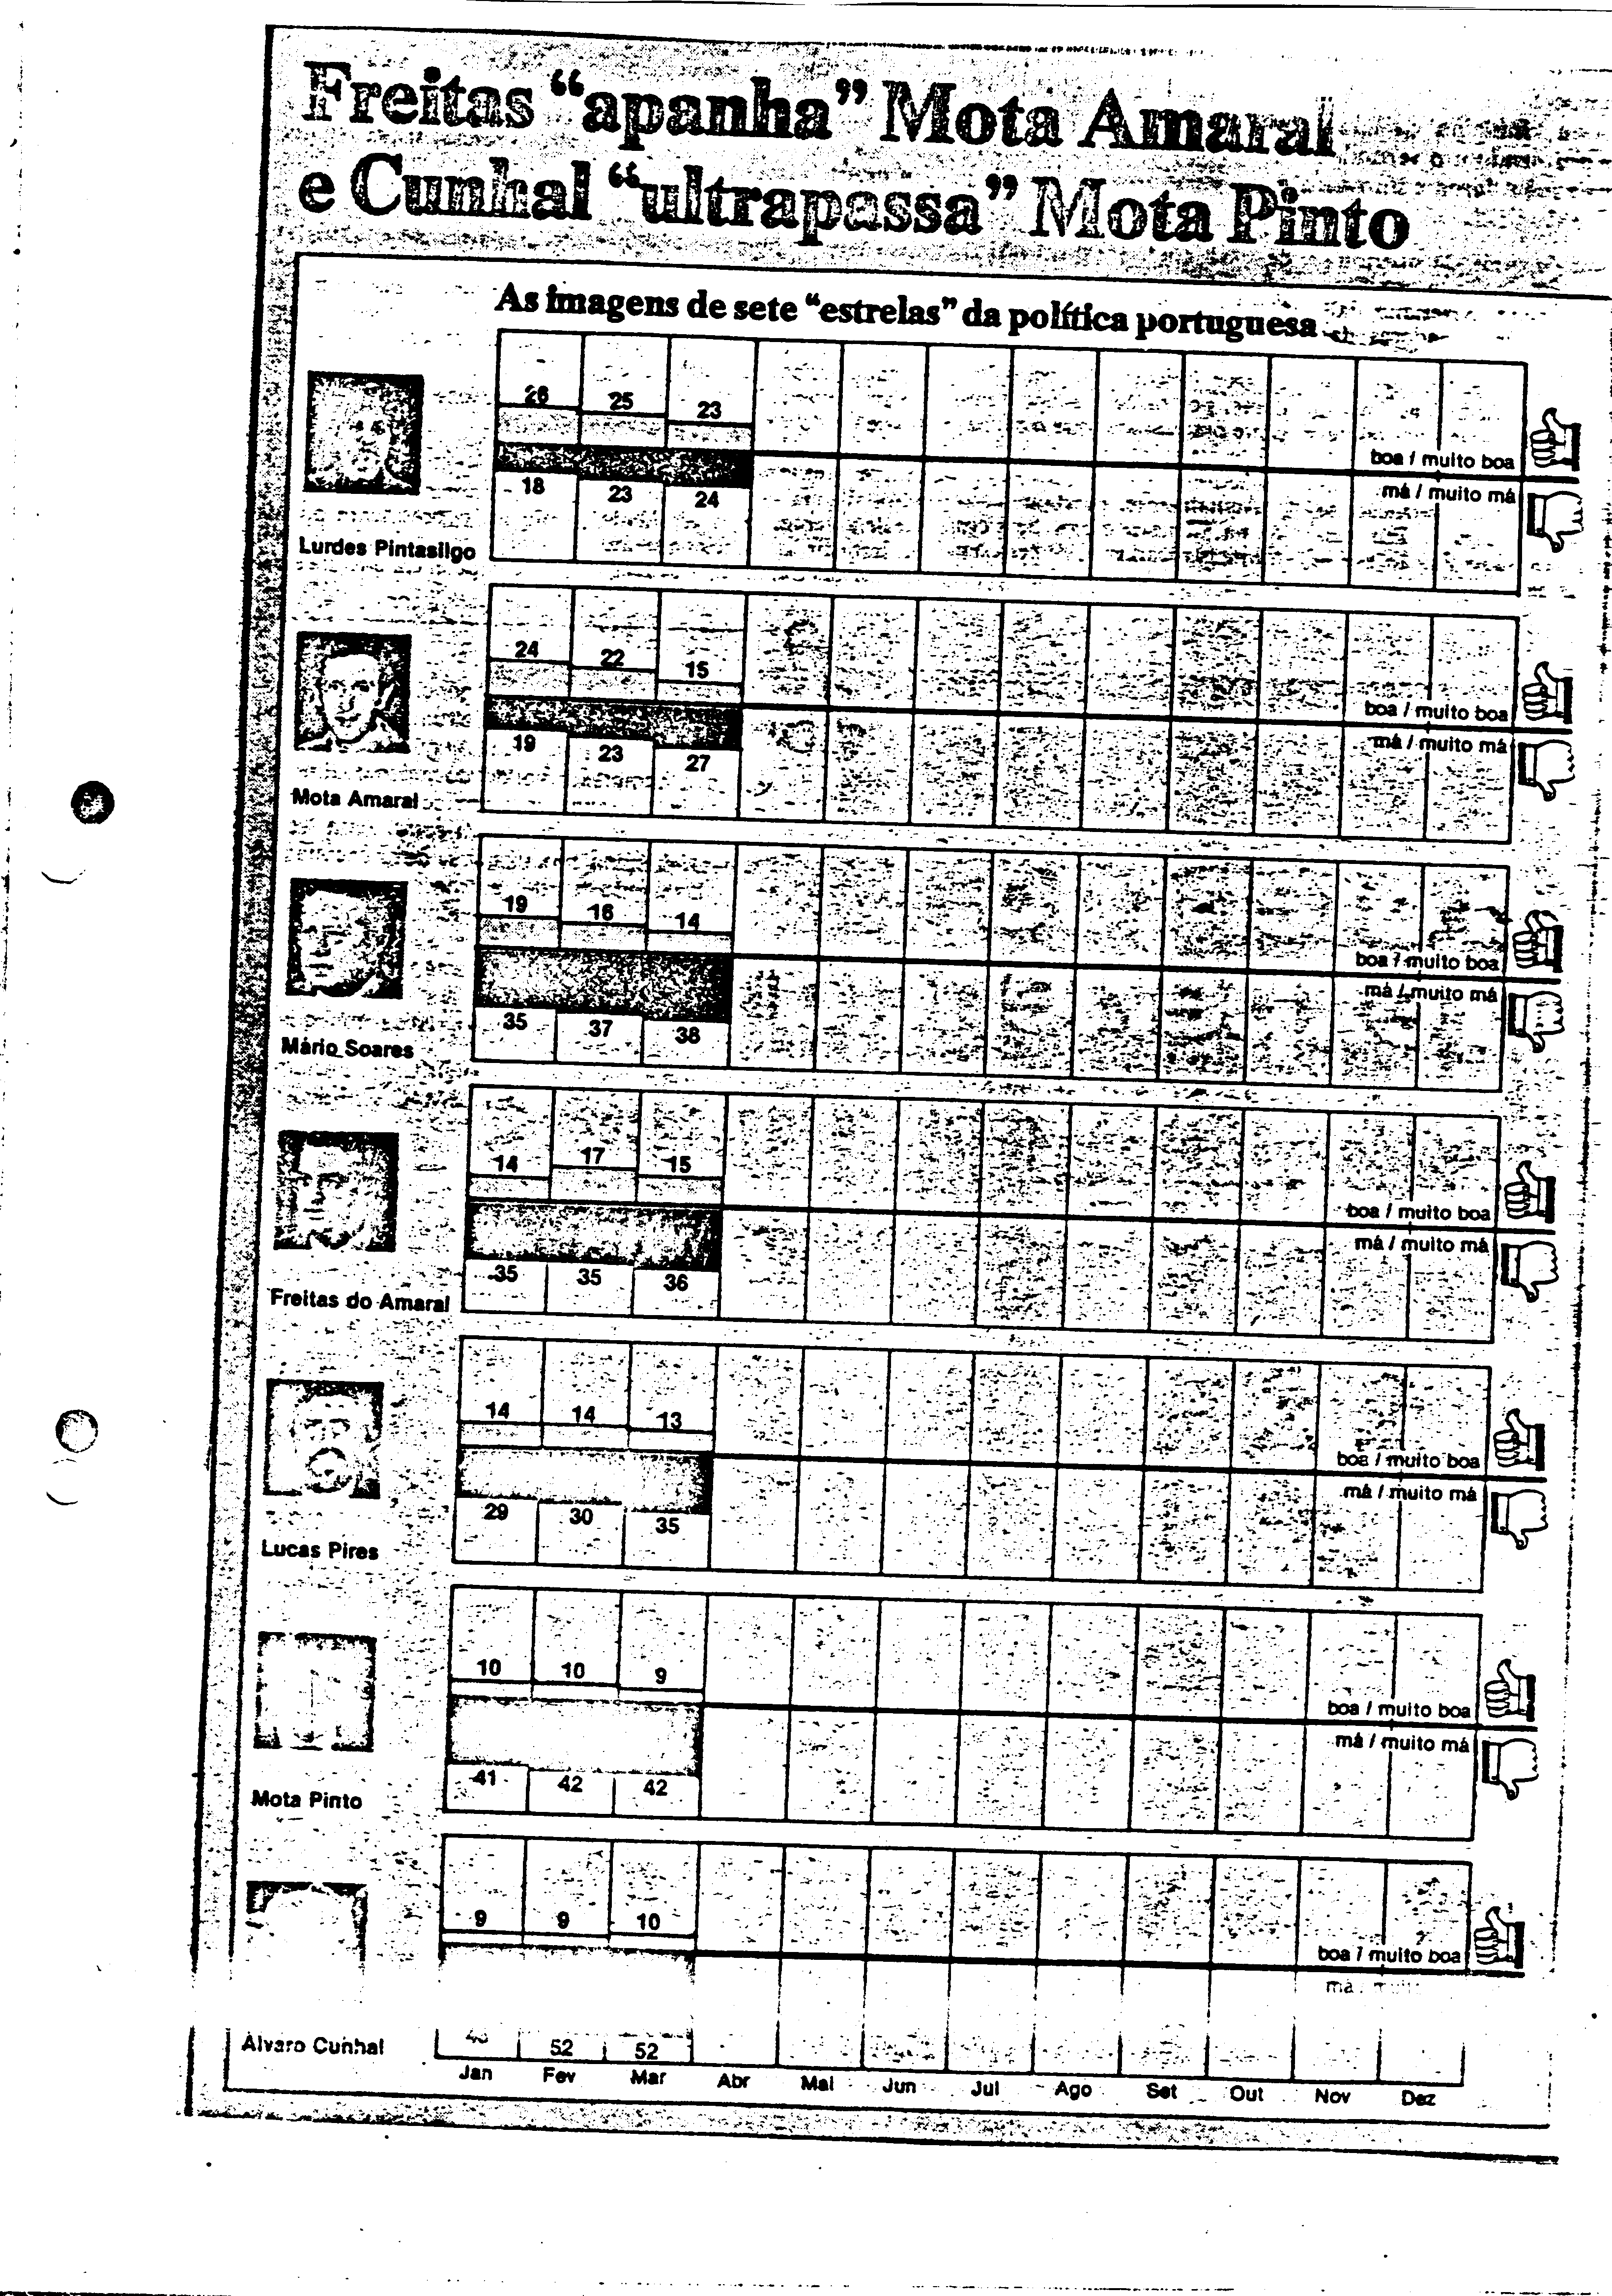 Freitas “apanha” Mota Amaral
e Cunhal “ultrapassa” Mota Pinto
As imagens de sete “estrelas” da política portuguesa
26 25 23
boa / muito boa
má / muito má
18 23 24
Lurdes Pintasilgo
24 22 15
boa / muito boa
má / muito má
19 23 27
Mota Amaral
19 16 14
boa / muito boa
má / muito má
35 37 38
Mário Soares
14 17 15
boa / muito boa
má / muito má
35 35 36
Freitas do Amaral
14 14 13
boa / muito boa
má / muito má
29 30 35
Lucas Pires
10 10 9
boa / muito boa
má / muito má
41 42 42
Mota Pinto
9 9 10
boa / muito boa
má
Alvaro Cunhal
52 52
Jan Fev Mar Abr Mai Jun Jul Ago Set Out Nov Dez